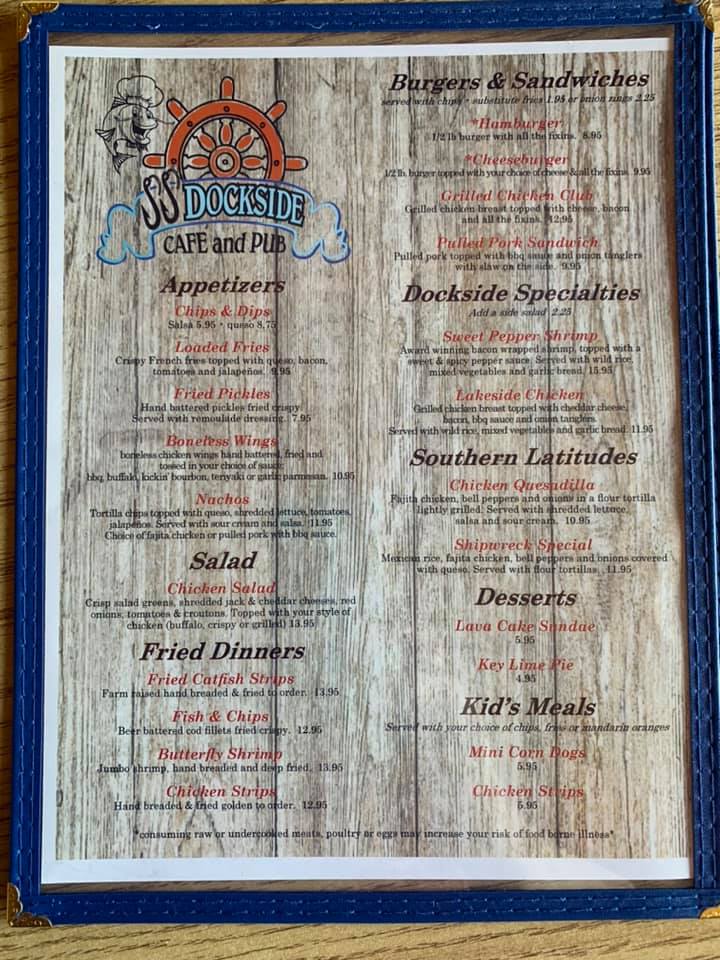 SS DOCKSIDE
CAFÉ and PUB
Appetizers
Chips & Dips
Salsa 5.95 • queso 8.75
Loaded Fries
Crispy French fries topped with queso, bacon,
tomatoes and jalapeños. 9.95
Fried Pickles
Hand battered pickles fried crispy.
Served with remoulade dressing. 7.95
Boneless Wings
boneless chicken wings hand battered, fried and
tossed in your choice of sauce;
bbq, buffalo, kickin' bourbon, teriyaki or garlic parmesan. 10.95
Nachos
Tortilla chips topped with queso, shredded lettuce, tomatoes,
jalapeños. Served with sour cream and salsa. 11.95
Choice of fajita chicken or pulled pork with bbq sauce.
Salad
Chicken Salad
Crisp salad greens, shredded jack & cheddar cheeses, red
onions, tomatoes & croutons. Topped with your style of
chicken (buffalo, crispy or grilled) 13.95
Fried Dinners
Fried Catfish Strips
Farm raised hand breaded & fried to order. 13.95
Fish & Chips
Beer battered cod fillets fried crispy. 12.95
Butterfly Shrimp
Jumbo shrimp, hand breaded and deep fried. 13.95
Chicken Strips
Hand breaded & fried golden to order. 12.95
Burgers & Sandwiches
served with chips • substitute fries 1.95 or onion rings 2.25
*Hamburger
1/2 lb burger with all the fixins. 8.95
*Cheeseburger
1/2 lb. burger topped with your choice of cheese & all the fixins. 9.95
Grilled Chicken Club
Grilled chicken breast topped with cheese, bacon
and all the fixins. 12.95
Pulled Pork Sandwich
Pulled pork topped with bbq sauce and onion tanglers
with slaw on the side. 9.95
Dockside Specialties
Add a side salad 2.25
Sweet Pepper Shrimp
Award winning bacon wrapped shrimp, topped with a
sweet & spicy pepper sauce. Served with wild rice,
mixed vegetables and garlic bread. 15.95
Lakeside Chicken
Grilled chicken breast topped with cheddar cheese,
bacon, bbq sauce and onion tanglers.
Served with wild rice, mixed vegetables and garlic bread. 11.95
Southern Latitudes
Chicken Quesadilla
Fajita chicken, bell peppers and onions in a flour tortilla
lightly grilled. Served with shredded lettuce,
salsa and sour cream. 10.95
Shipwreck Special
Mexican rice, fajita chicken, bell peppers and onions covered
with queso. Served with flour tortillas. 11.95
Desserts
Lava Cake Sundae
5.95
Key Lime Pie
4.95
Kid's Meals
Served with your choice of chips, fries or mandarin oranges
Mini Corn Dogs
5.95
Chicken Strips
5.95
*consuming raw or undercooked meats, poultry or eggs may increase your risk of food borne illness*